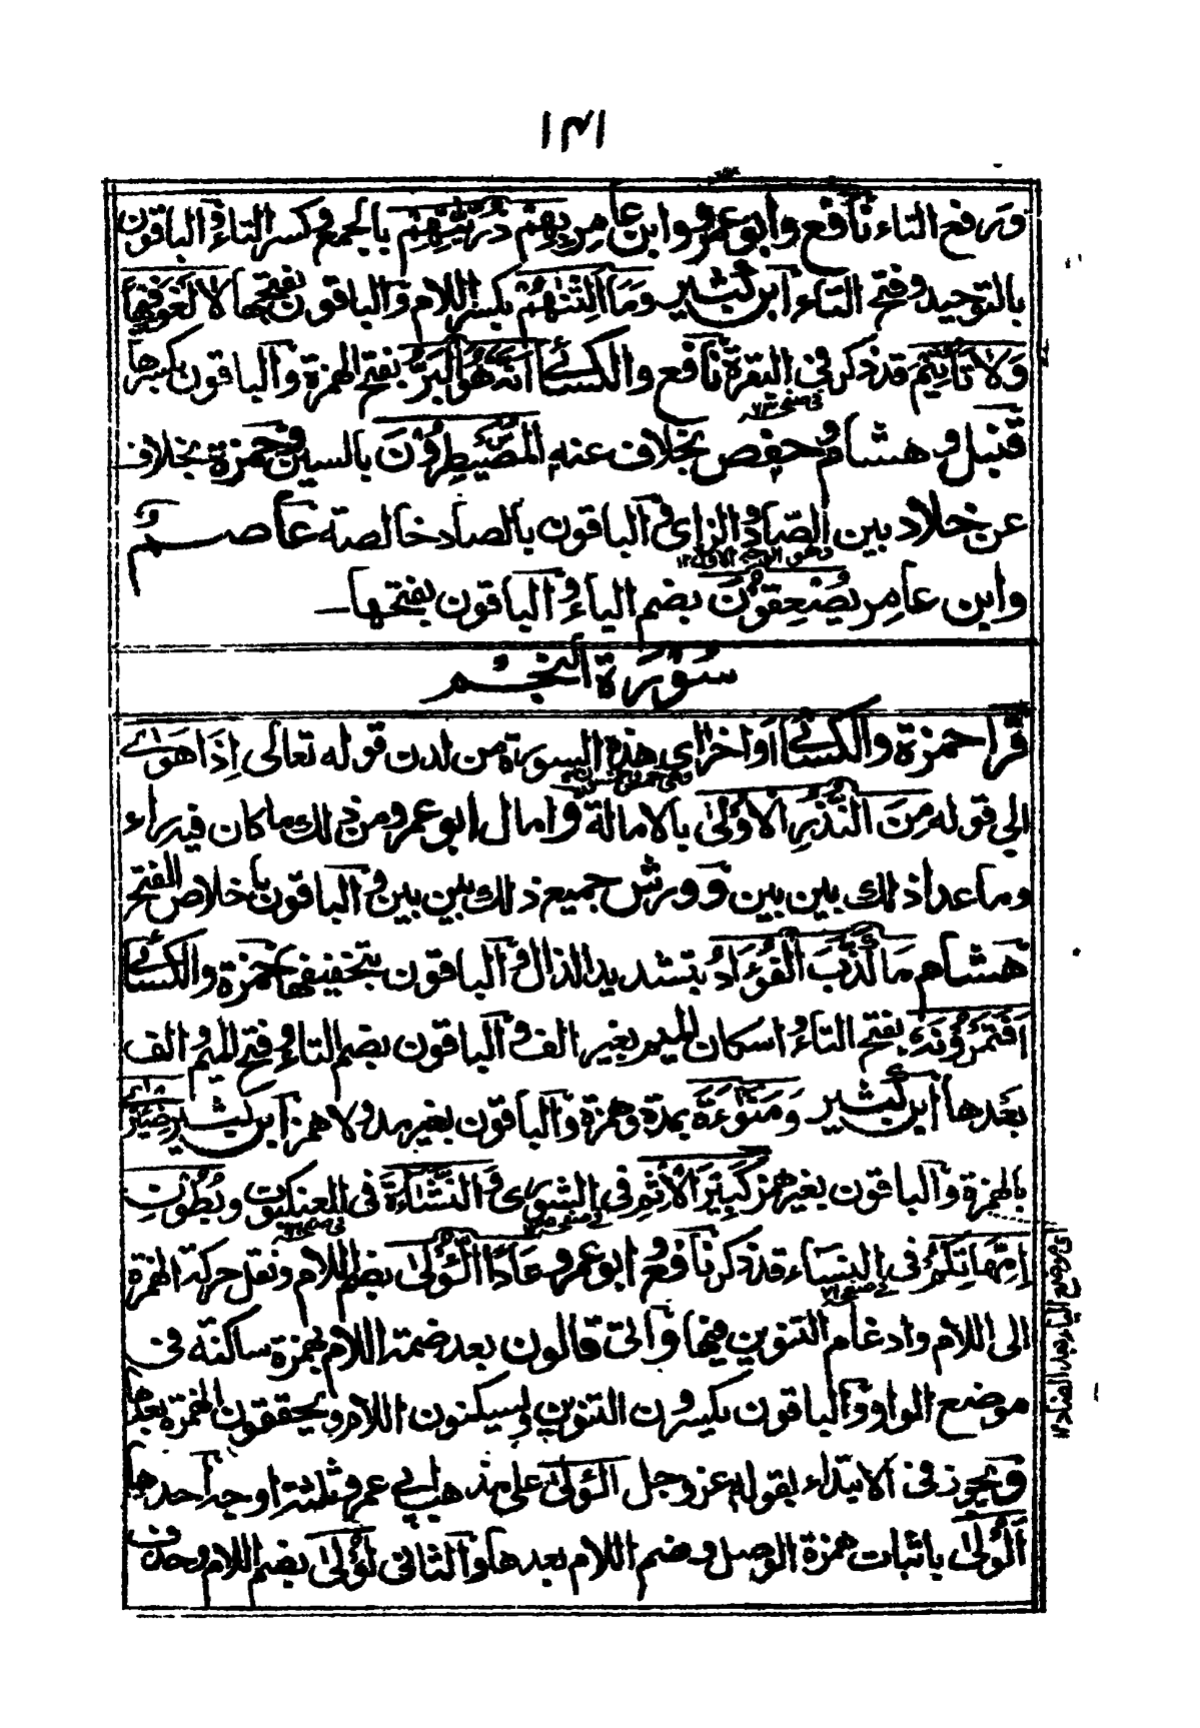 ١٣١
ورفع التاء نافع وابو عمرو وابن عامر بهم ذريتهم بالجمع وكسر التاء والباقون
بالتوحيد وفتح التاء ابن كثير وما التنهم بكسر اللام والباقون بفتحها لا لغو فيها
ولا تاثيم قد ذكر فى البقرة نافع والكسائى انه هو البر بفتح الهمزة والباقون بكسرها
فى صفحه ٧٣
قنبل وهشام وحفص بخلاف عنه المصيطرون بالسين وحمزة بخلاف
عن خلاد بين الصاد والزاى والباقون بالصاد خالصته عاصم
وهو الوجه الاول ١٢
وابن عامر يصعقون بضم الياء والباقون بفتحها
سورة النجم
قرا حمزة والكسائى اواخر اى هذه السورة من لدن قوله تعالى اذا هوى
الى قوله من النذر الاولى بالامالة وامال ابو عمرو من ذلك ما كان فيه راء
وما عدا ذلك بين بين وورش جميع ذلك بين بين والباقون باخلاص الفتح
هشام ما كذب الفؤاد بتشديد الذال والباقون بتخفيفها حمزة والكسائى
افتمرونه بفتح التاء واسكان الميم بغير الف والباقون بضم التاء وفتح الميم والف
بعدها ابن كثير ومنوءة بمدة وهمزة والباقون بغير مد ولا همز ابن كثير ضئزى
بالهمزة والباقون بغير همز كبير الاثم فى الشورى والنشاة فى العنكبوت وبطون
امهاتكم فى النساء قد ذكر نافع وابو عمرو عادا الولى بضم اللام ونقل حركة الهمزة
فى صفحه ٧١
الى اللام وادغام التنوين فيها واتى قالون بعد ضمة اللام بهمزة ساكنة فى
موضع الواو والباقون يكسرون التنوين ويسكنون اللام ويحققون الهمزة بعدها
ويجوز فى الابتداء بقوله عز وجل الولى على مذهب ابى عمرو ثلثة اوجه احدها
الولى باثبات همزة الوصل وضم اللام بعدها والثانى لولى بضم اللام وحذف